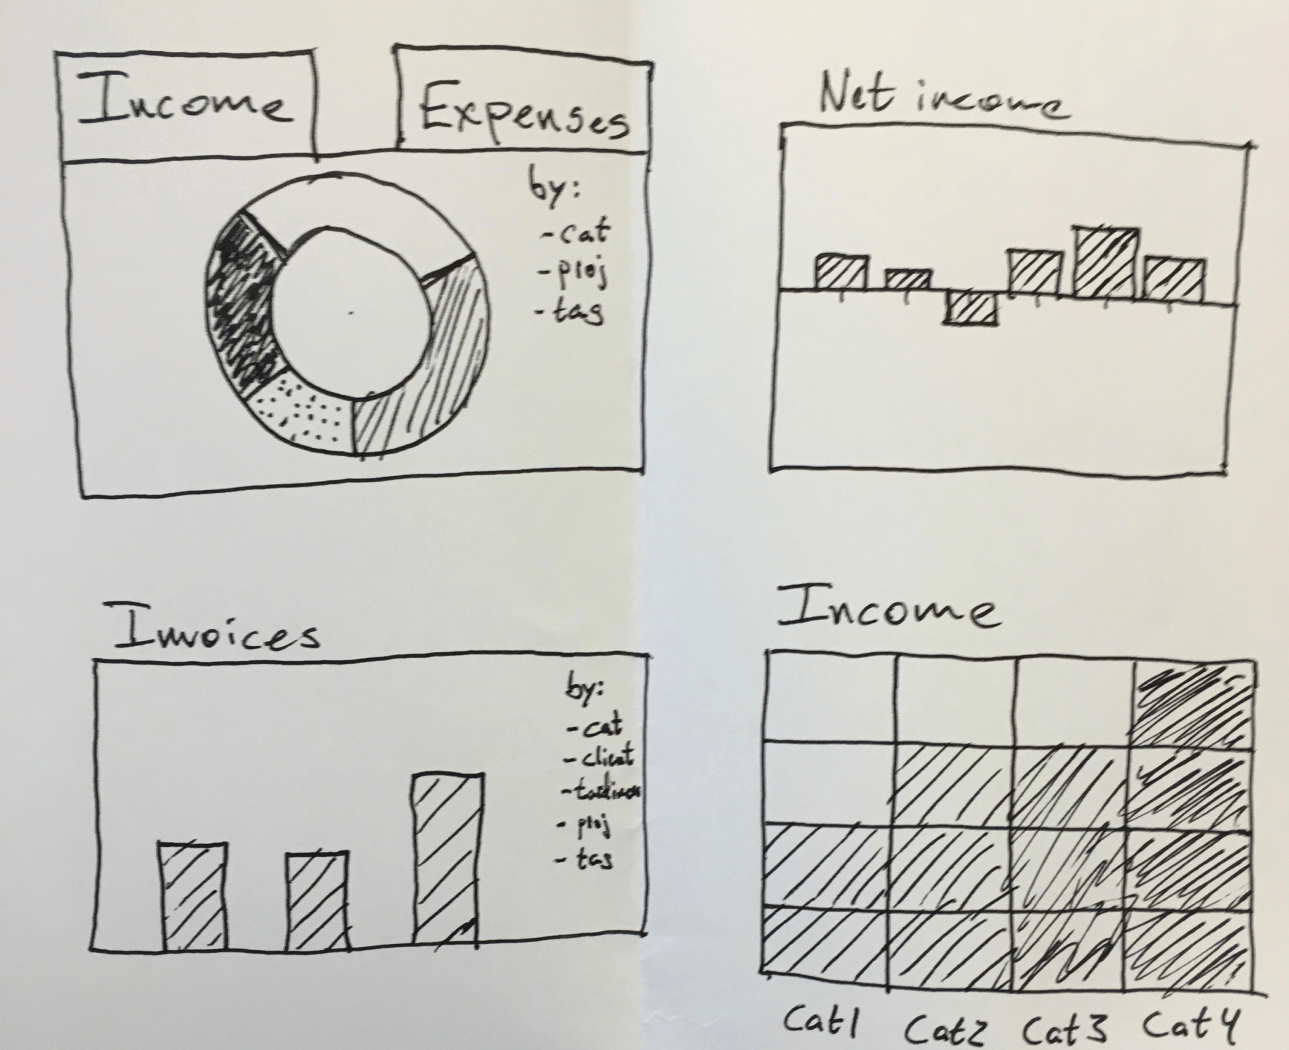 Income
Expenses
by:
- cat
- proj
- tag
Net income
Invoices
by:
- cat
- client
- proj
- tag
Income
Cat1
Cat2
Cat3
Cat4